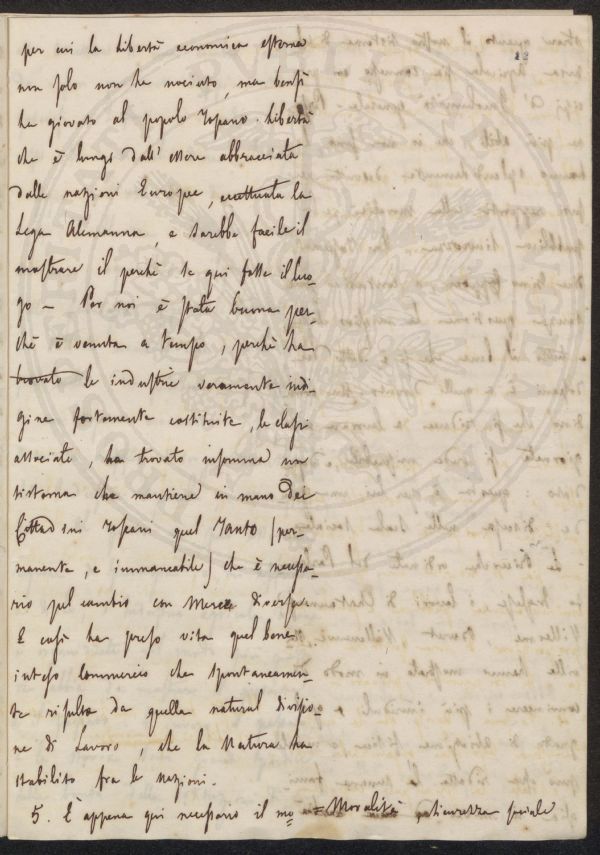 12
per cui la libertà economica esterna
non solo non ha nociuto, ma bensì
ha giovato al popolo Toscano. Libertà
che è lungi dall' essere abbracciata
dalle nazioni Europee, eccettuata la
Lega Alemanna, e sarebbe facile il
mostrare il perchè se qui fosse il luo-
go — Per noi è stata buona per-
chè è venuta a tempo, perchè ha
trovato le industrie veramente indi-
gine fortemente costituite, le classi
associate, ha trovato insomma un
sistema che mantiene in mano dei
Cittadini Toscani quel Tanto (per-
manente, e immancabile) che è necessa-
rio pel cambio con Merce diversa.
E così ha preso vita quel bene
inteso Commercio che spontaneamen-
te risulta da quella natural divisio-
ne di Lavoro, che la Natura ha
stabilito fra le nazioni.
5. È appena qui necessario il mo- = Moralità, sicurezza sociale